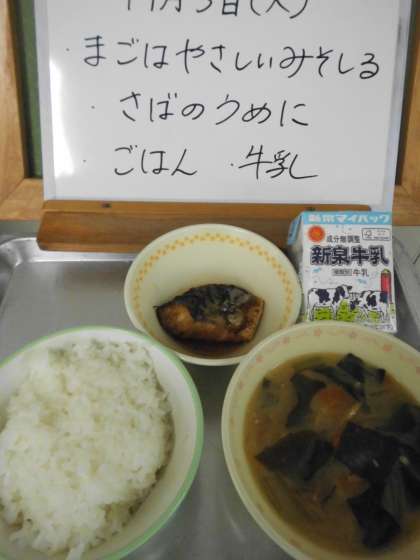 11月5日(火)
・まごはやさしいみそしる
・さばのうめに
・ごはん ・牛乳
新泉マイパック
成分無調整
新泉牛乳
種類別 牛乳